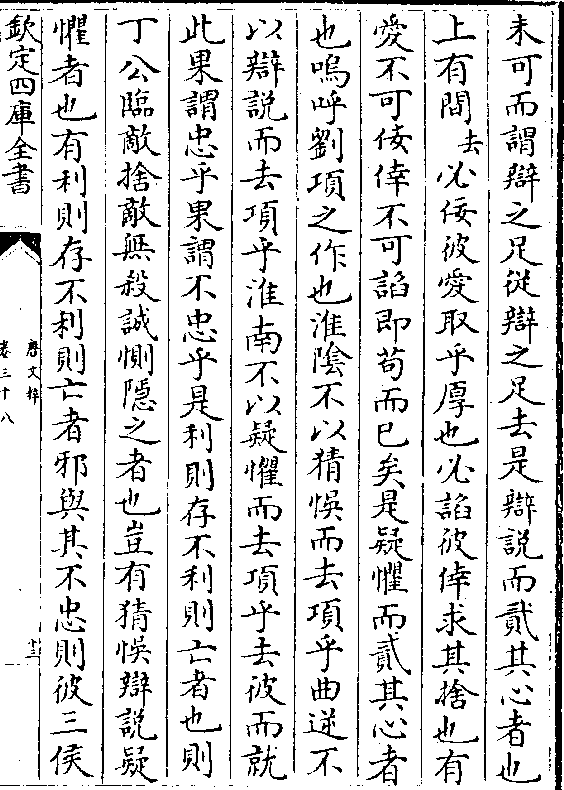 未可而謂辯之足從辯之足去是辯說而貳其心者也
上有間去必佞彼愛取乎厚也必諂彼倖求其捨也有
愛不可佞倖不可諂即苟而已矣是疑懼而貳其心者
也嗚呼劉項之作也淮陰不以猜悞而去項乎曲逆不
以辯說而去項乎淮南不以疑懼而去項乎去彼而就
此果謂忠乎果謂不忠乎是利則存不利則亡者也則
丁公臨敵捨敵無殺誠惻隱之者也豈有猜悞辯說疑
懼者也有利則存不利則亡者邪與其不忠則彼三侯
欽定四庫全書
唐文粹
卷三十八
十三